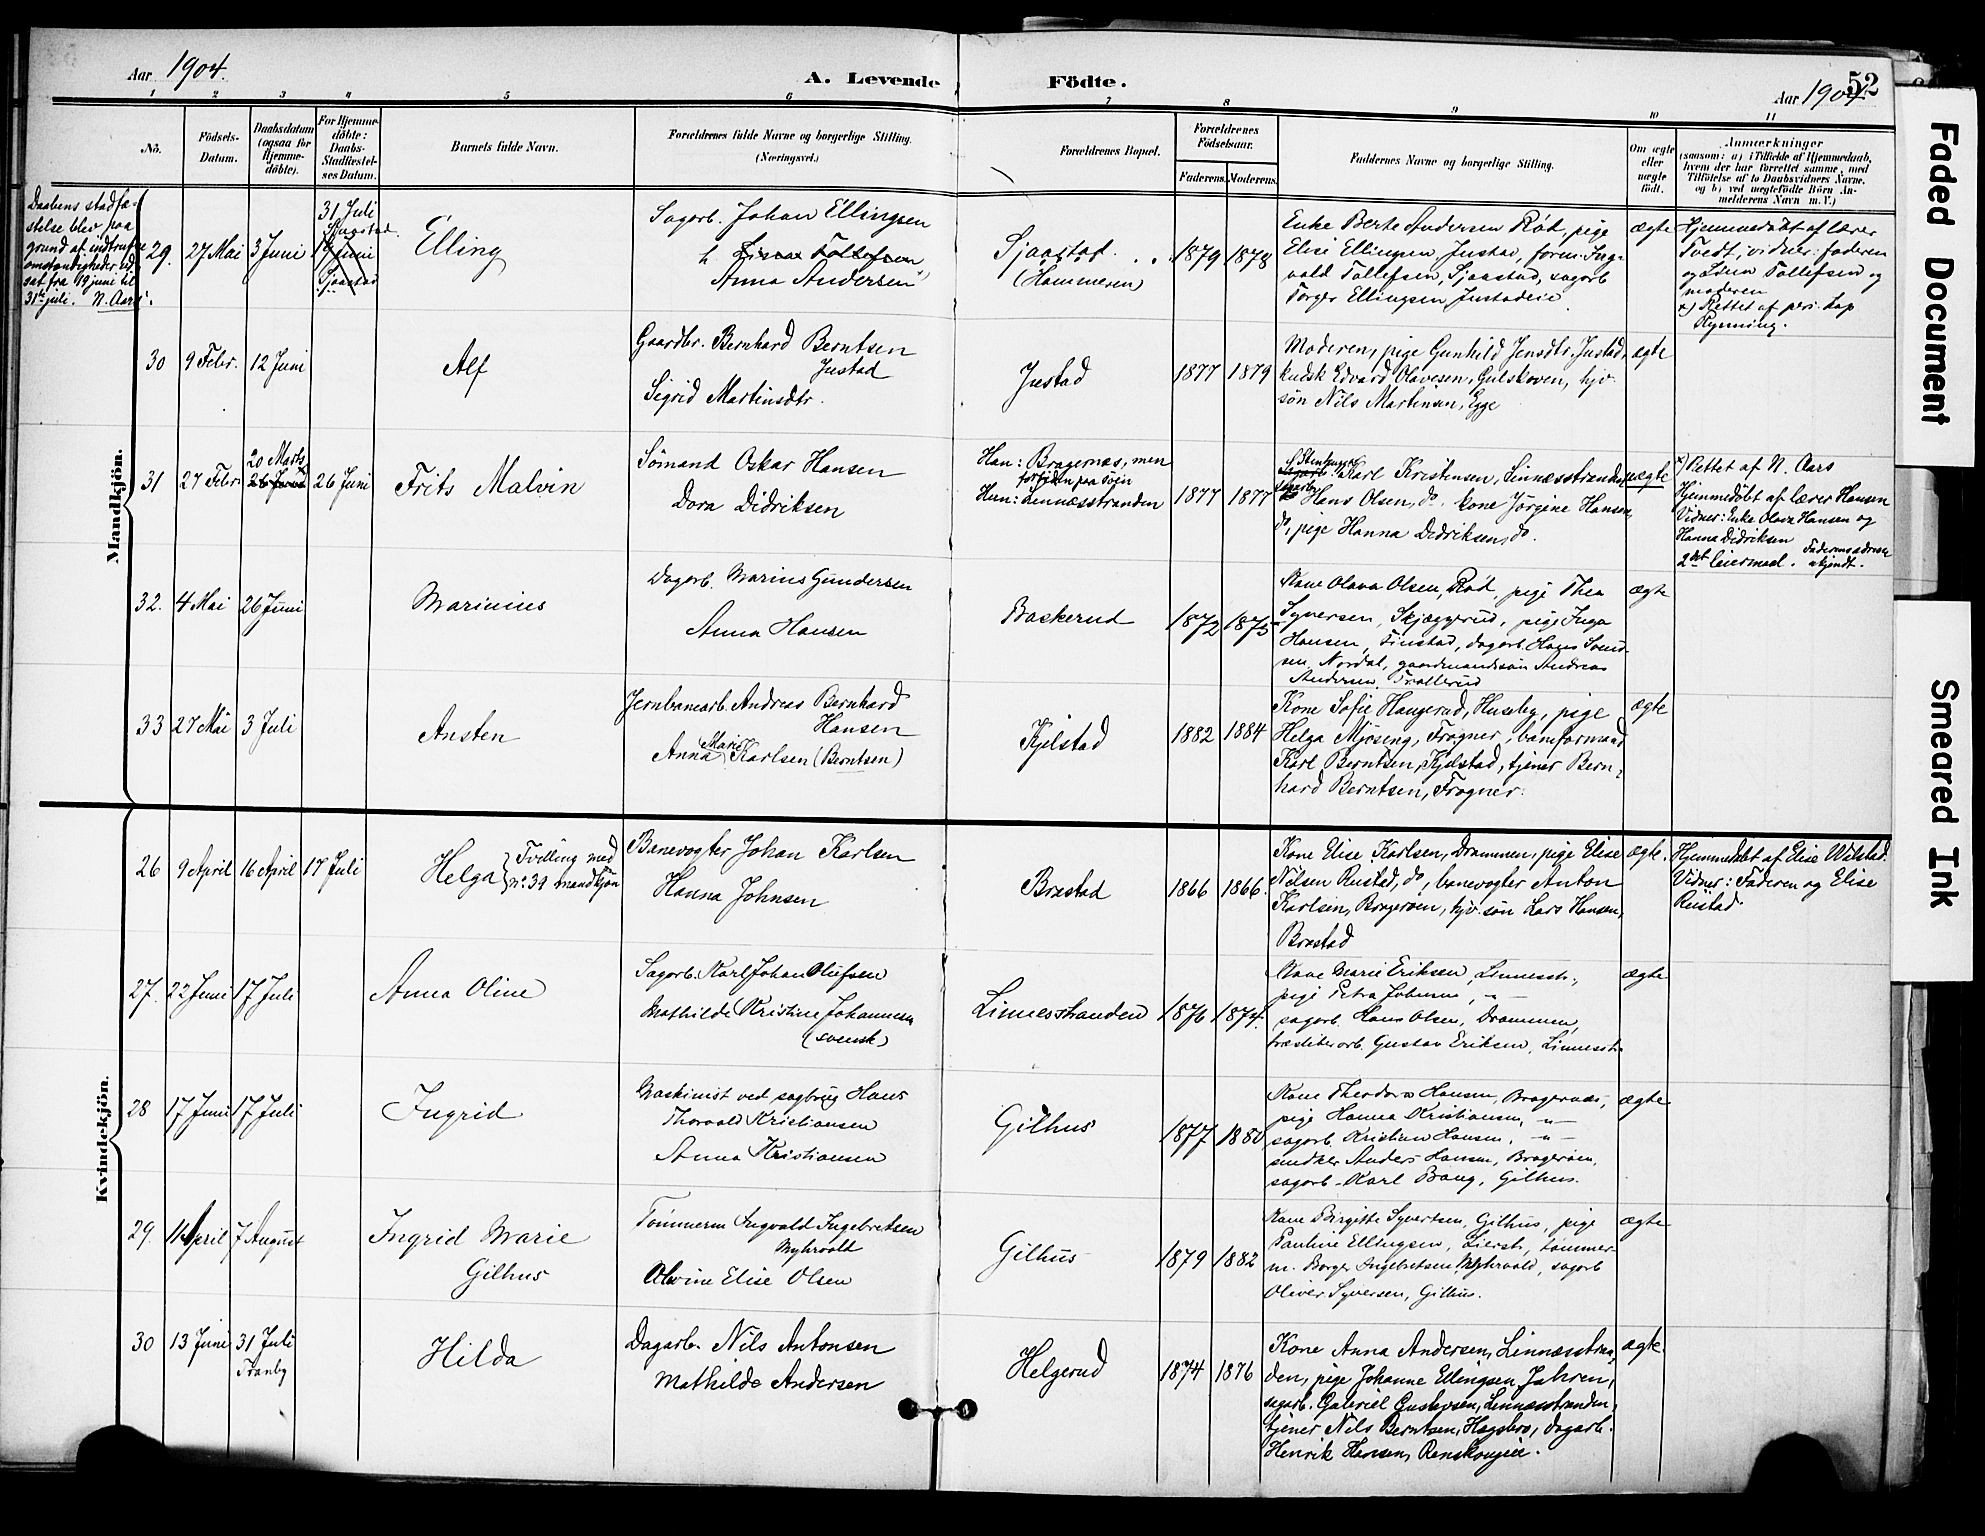 Aar 1904.
A. Levende Födte.
Aar 1904
52
1 2 3 4 5 6 7 8 9 10 11
Nö.
Födsels-Datum.
Daabsdatum (ogsaa for Hjemmedöbte).
For Hjemmedöbte: Daabs-Stadfæstelses Datum.
Barnets fulde Navn.
Forældrenes fulde Navne og borgerlige Stilling. (Næringsvei.)
Forældrenes Bopæl.
Forældrenes Födselsaar.
Faderens. Moderens.
Faddernes Navne og borgerlige Stilling.
Om ægte eller uægte födt.
Anmærkninger
(saasom: a) i Tilfælde af Hjemmedaab,
hvem der har forrettet samme, med
Tilföielse af to Daabsvidners Navne,
og b) ved uægtefödte Börn An-
melderens Navn m. V.)
Mandkjön.
Daabens stadfæ-
stelse blev paa
grund af indtrufne
omstændigheder ud-
sat fra 19 juni til
31te juli. N. Aars.
29.
27 Mai
3 Juni
31 Juli
Sjaastad.
19 Juni
Sjaastad
Elling
Sagarb. Johan Ellingsen
h. Tollefsen
Anna Andersen
Sjaastad
(Hammeren)
1879
1878
Enke Berte Andersen Rød, pige
Elise Ellingsen Justad, form. Ing-
vald Tollefsen, Sjaastad, sagarb
Torger Ellingsen Justadeie
ægte
Hjemmedøbt af lærer
Tvedt, vidner: faderen
og Tollefsen og
moderen
x) Rettet af pers. kap
Rynning.
30
9 Febr.
12 Juni
Alf
Gaardbr. Bernhard Berntsen
Justad
Sigrid Martinsdtr.
Justad
1877
1879
Moderen, pige Gunhild Jensdtr. Justad,
kudsk Edvard Olavesen, Gulskoven, hjv.
søn Nils Martinsen, Egge
ægte
31
27 Febr
20 Marts
26 Juni
26 Juni
Frits Malvin
Sømand Oskar Hansen
Dora Didriksen
Han: Bragernæs, men
for tiden paa Søjn
Hun: Linnæsstranden
1877
1877
Karl Kristensen, Linnæsstranden
Hans Olsen, do. kone Jörgine Hansen,
do, pige Hanna Didriksen, do.
uægte
x) Rettet af N. Aars
Hjemmedøbt af lærer Hansen
Vidner: Enke Olava Hansen og
Hanna Didriksen
2det leiermaal. Faderens adresse
ukjendt.
32.
4 Mai
26 Juni
Marinius
Dagarb. Marius Gundersen
Anna Hansen
Baskerud
1872
1875
Kone Olava Olsen, Rød, pige Thea
Syversen, Skjæggerud, pige Inga
Hansen, Tinstad, dagarb. Hans Svend-
sen, Nordal, gaardmandssøn Andreas
Andersen, Trollerud
ægte
33
27 Mai
3 Juli
Ansten
Jernbanearb. Andreas Bernhard
Hansen
Anna Marie Karlsen (Berntsen)
Kjelstad
1882
1884
Kone Sofie Haugerud, Huseby, pige
Helga Mjøseng, Frogner, baneformand
Karl Berntsen, Kjelstad, tjener Bern-
hard Berntsen, Frogner.
ægte
Kvindekjön.
26
9 April
16 April
17 Juli
Helga
Tvilling med
no. 34 mandkjøn
Banevogter Johan Karlsen
Hanna Johnsen
Brastad
1866
1866.
Kone Elise Karlsen, Drammen, pige Elise
Nilsen Rustad, do, banevogter Anton
Karlsen, Bragerøen, hjv. søn Lars Hansen,
Brastad
ægte.
Hjemmedøbt af Elise Wilstad.
Vidner: Faderen og Elise
Rustad.
27.
22 Juni
17 Juli
Anna Oline
Sagarb. Karl Johan Olufsen
Mathilde Kristine Johannesen
(svensk)
Linnesstranden
1876
1874.
Kone Marie Eriksen, Linnesstr.,
pige Petra Johnsen, -"-
sagarb. Hans Olsen, Drammen,
træsliberarb. Gustav Eriksen, Linnesstr.
ægte
28
17 Juni
17 Juli
Ingrid
Maskinist ved sagbrug Hans
Thorvald Kristiansen
Anna Kristiansen
Gilhus
1877
1880
Kone Theodora Hansen, Bragernæs,
pige Hanna Kristiansen, -"-
sagarb. Kristian Hansen, -"-
snedker Anders Hansen, Bragerøen,
sagarb. Karl Bang, Gilhus.
ægte
29.
11 April
7 August
Ingrid Marie
Gilhus
Tömmerm. Ingvald Ingebretsen
Myhrvold
Olivine Elise Olsen
Gilhus
1879
1882
Kone Birgitte Syvertsen, Gilhus, pige
Pauline Ellingsen, Lierstr., tømmer-
m. Borger Ingebretsen Myhrvold, sagarb
Oliver Syversen, Gilhus.
ægte
30
13 Juni
31 Juli
Tranby
Hilda
Dagarb. Nils Antonsen
Mathilde Andersen
Helgerud
1874
1876
Kone Anna Andersen, Linnæsstran-
den, pige Johanne Ellingsen, Jahren,
sagarb. Gabriel Gustavsen, Linnæsstranden,
tjener Nils Berntsen, Hagsbro, dagarb.
Henrik Hansen, Renskougeie.
ægte.
Faded Document
Smeared Ink